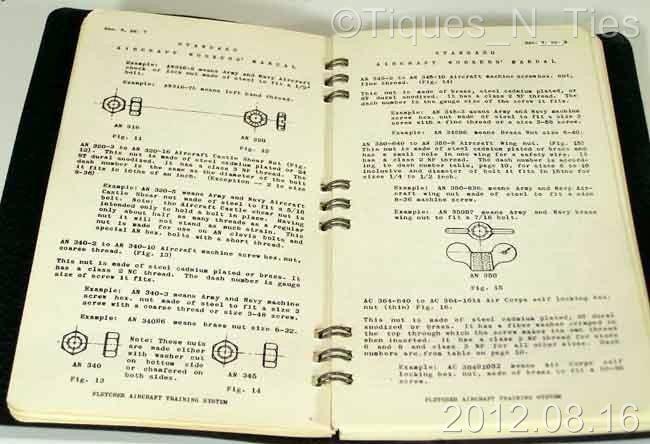 ©Tiques_N_Ties
Sec. 9, pg. 7
STANDARD
AIRCRAFT WORKERS' MANUAL
Example: AN316-8 means Army and Navy Aircraft
check or lock nut made of steel to fit a 1/2"
bolt.
Example: AN316-7L means left hand thread.
AN 316
Fig. 11
AN 320
Fig. 12
AN 320-3 to AN 320-16 Aircraft Castle Shear Nut (Fig.
12). This nut is made of steel cadmium plated or 24
ST dural anodized. It has a class 3 NF thread. The
dash number is the same as the diameter of the bolt
it fits in 16ths of an inch. (Exception -- 2 is size
6-36)
Example: AN 320-5 means Army and Navy Aircraft
Castle Shear nut made of steel to fit a 5/16
bolt. Note: the Aircraft Castle shear nut is
intended only to hold a bolt in place. Having
only about half as many threads as a regular
nut it will not stand as much strain. This
nut is made for use on AN clevis bolts and
special AN hex. bolts with a short thread.
AN 340-2 to AN 340-10 Aircraft machine screw hex. nut,
coarse thread. (Fig. 13)
This nut is made of steel cadmium plated or brass. It
has a class 2 NC thread. The dash number is gauge
size of screw it fits.
Example: AN 340-3 means Army and Navy machine
screw hex. nut made of steel to fit a size 3
screw with a coarse thread or size 3-48 screw.
Example: AN 340B6 means brass nut size 6-32.
Note: These nuts
are made either
with washer cut
on bottom side
or chamfered on
both sides.
AN 340
Fig. 13
AN 345
Fig. 14
FLETCHER AIRCRAFT TRAINING SYSTEM
Sec. 9, pg. 8
STANDARD
AIRCRAFT WORKERS' MANUAL
AN 345-2 to AN 345-10 Aircraft machine screw hex. nut,
fine thread. (Fig. 14)
This nut is made of brass, steel cadmium plated, or
ST dural anodized. It has a class 2 NF thread. The
dash number is the gauge size of the screw it fits.
Example: AN 345-3 means Army and Navy machine
screw hex. nut made of steel to fit a size 3
screw with a fine thread or a size 3-56 screw.
Example: AN 345B6 means Brass Nut size 6-40.
AN 350-640 to AN 350-8 Aircraft Wing nut. (Fig. 15)
This nut is made of steel cadmium plated or brass and
has a small hole in one wing for a safety wire. It
has a class 2 NF thread. The dash number is accord-
ing to dash number table, page 10, for sizes 6 to 10
inclusive and diameter of bolt it fits in 16ths for
sizes 1/4 to 1/2 inch.
Example: AN 350-836, means Army and Navy Air-
craft wing nut made of steel to fit a size
8-36 machine screw.
Example: AN 350B7 means Army and Navy brass
wing nut to fit a 7/16 bolt.
AN 350
Fig. 15
AC 364-640 to AC 364-1614 Air Corps self locking hex.
nut (thin) Fig. 16.
This nut is made of steel cadmium plated, ST dural
anodized or brass. It has a fiber washer crimped in
the top through which the screw makes its own thread
when inserted. It has a class 2 NF thread for sizes
6 and 8 and class 3 NF for all other sizes. Dash
numbers are from table on page 10.
Example: AC 364D1032 means Air Corps self
locking hex. nut, made of dural to fit a 10-32
screw.
FLETCHER AIRCRAFT TRAINING SYSTEM
2012.08.16